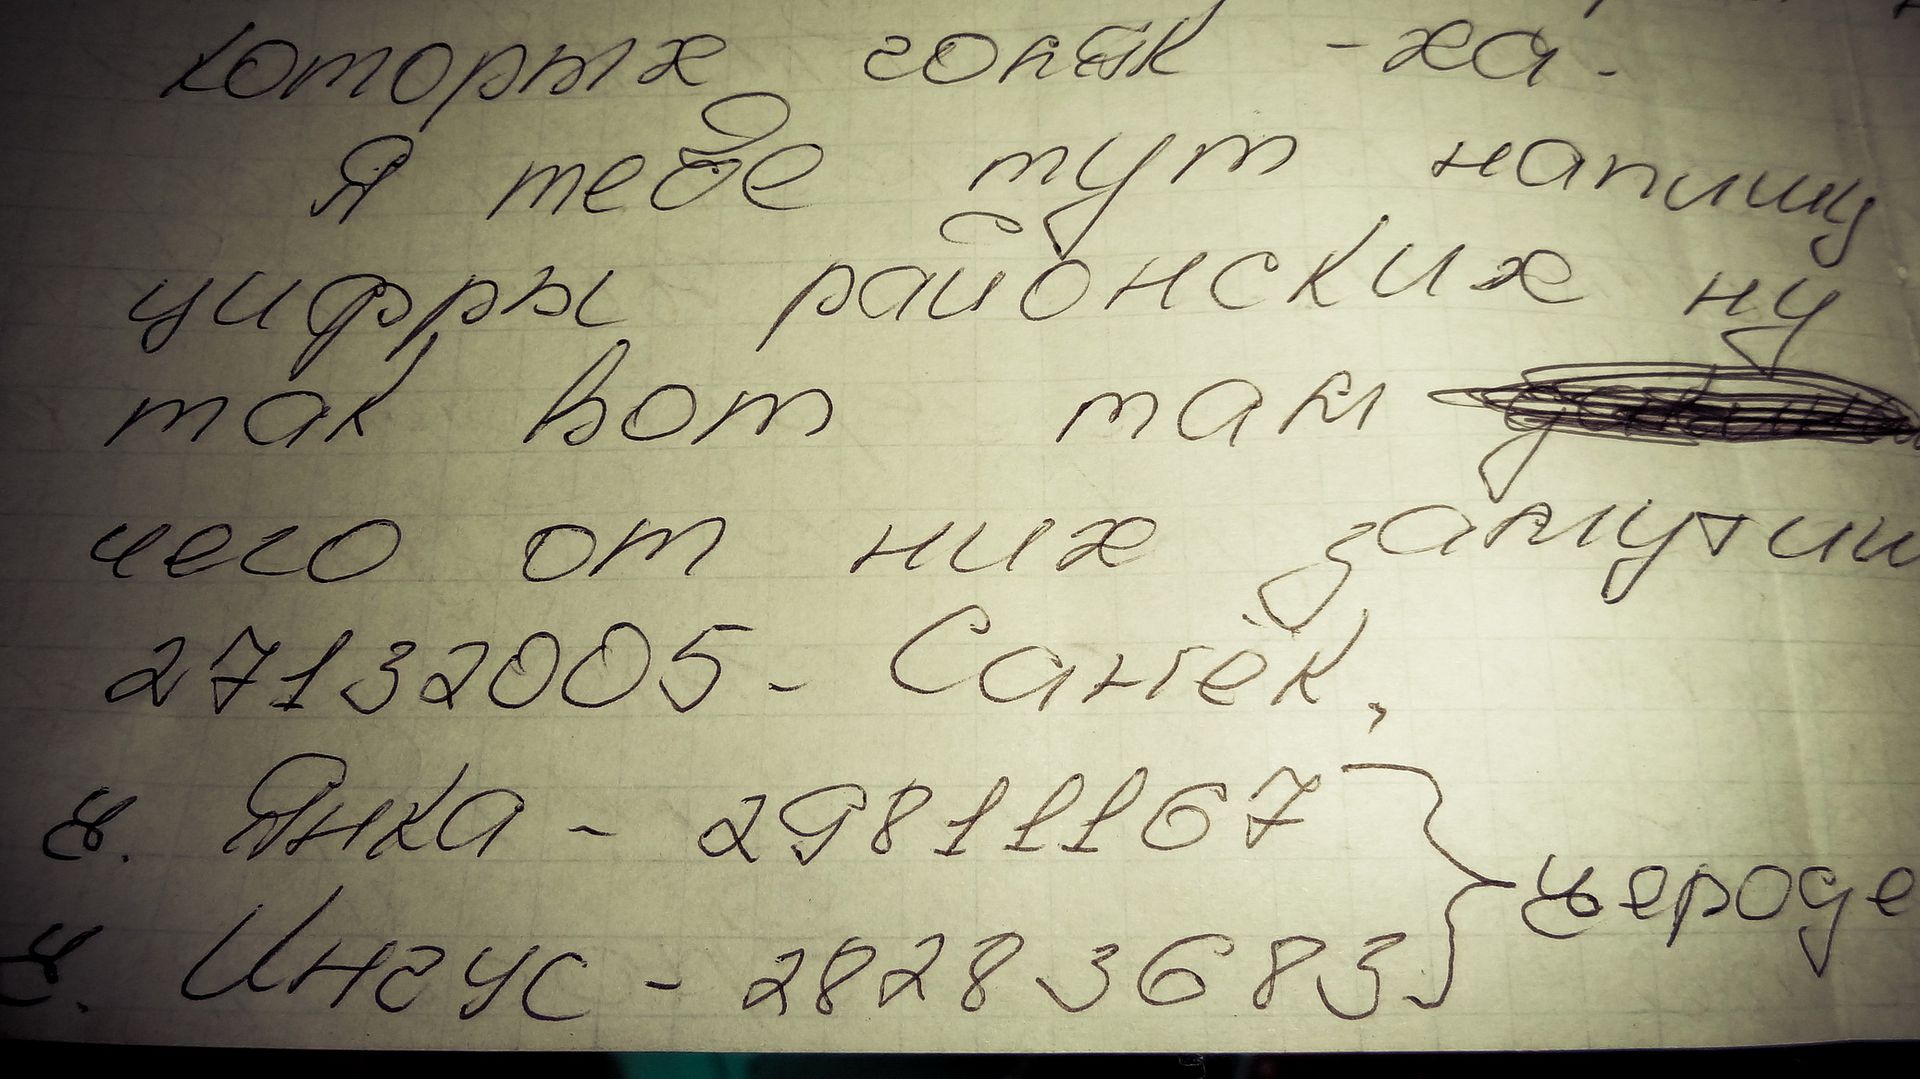 которых гоняк - ха.
Я тебе тут напишу
цифры районских ну
так вот там
чего от них замутиш
27132005 - Санёк,
Янка - 29811167
Ингус - 28283683